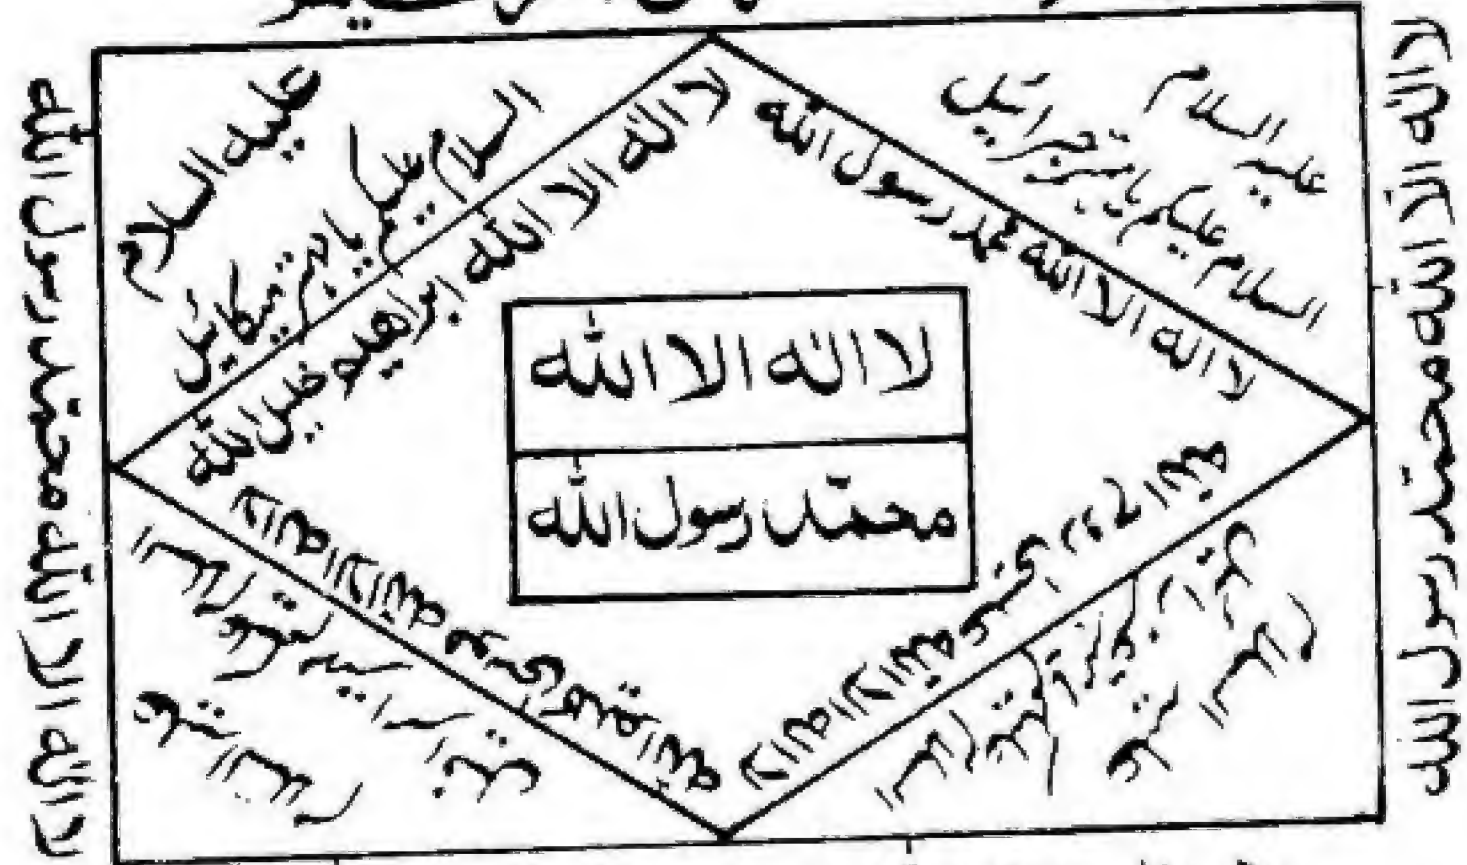 لا اله الا الله محمد رسول الله
عليه السلام
السلام عليكم يا مهتر جبرائيل
لا اله الا الله محمد رسول الله
عليه السلام
السلام عليكم يا مهتر ميكائيل
لا اله الا الله ابراهيم خليل الله
لا اله الا الله
محمد رسول الله
لا اله الا الله موسى كليم الله
السلام عليكم يا مهتر اسرافيل
عليه السلام
لا اله الا الله عيسى روح الله
السلام عليكم يا مهتر
عليه السلام
لا اله الا الله محمد رسول الله